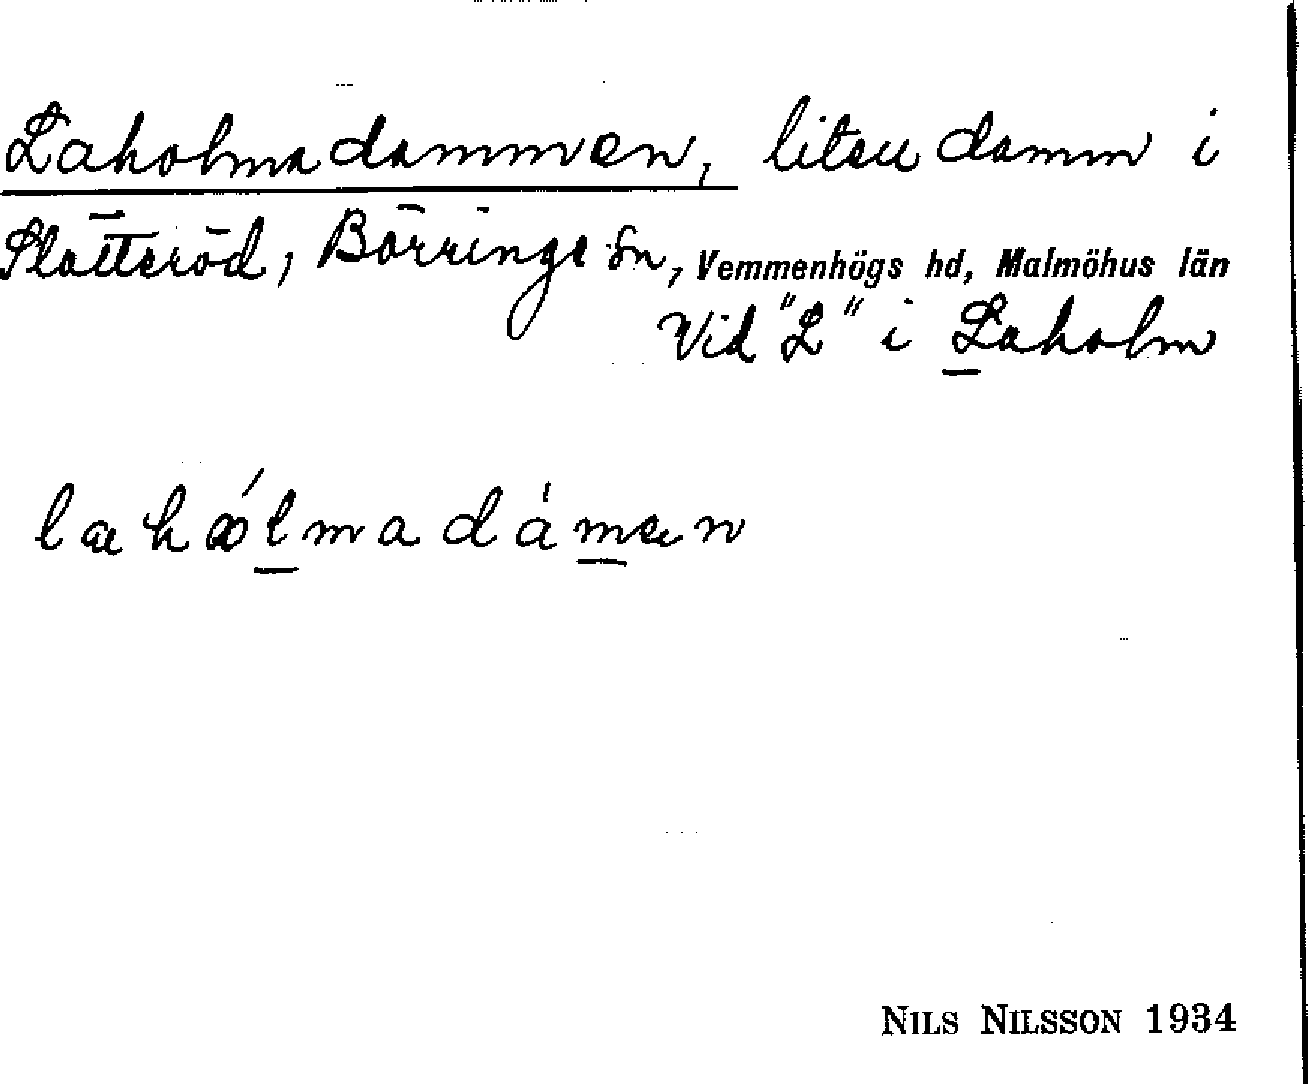 Laholmadammen, liten damm i
Slätteröd, Börringe sn, Vemmenhögs hd, Malmöhus län
Vid "L" i Laholm
lahólmadámen
NILS NILSSON 1934